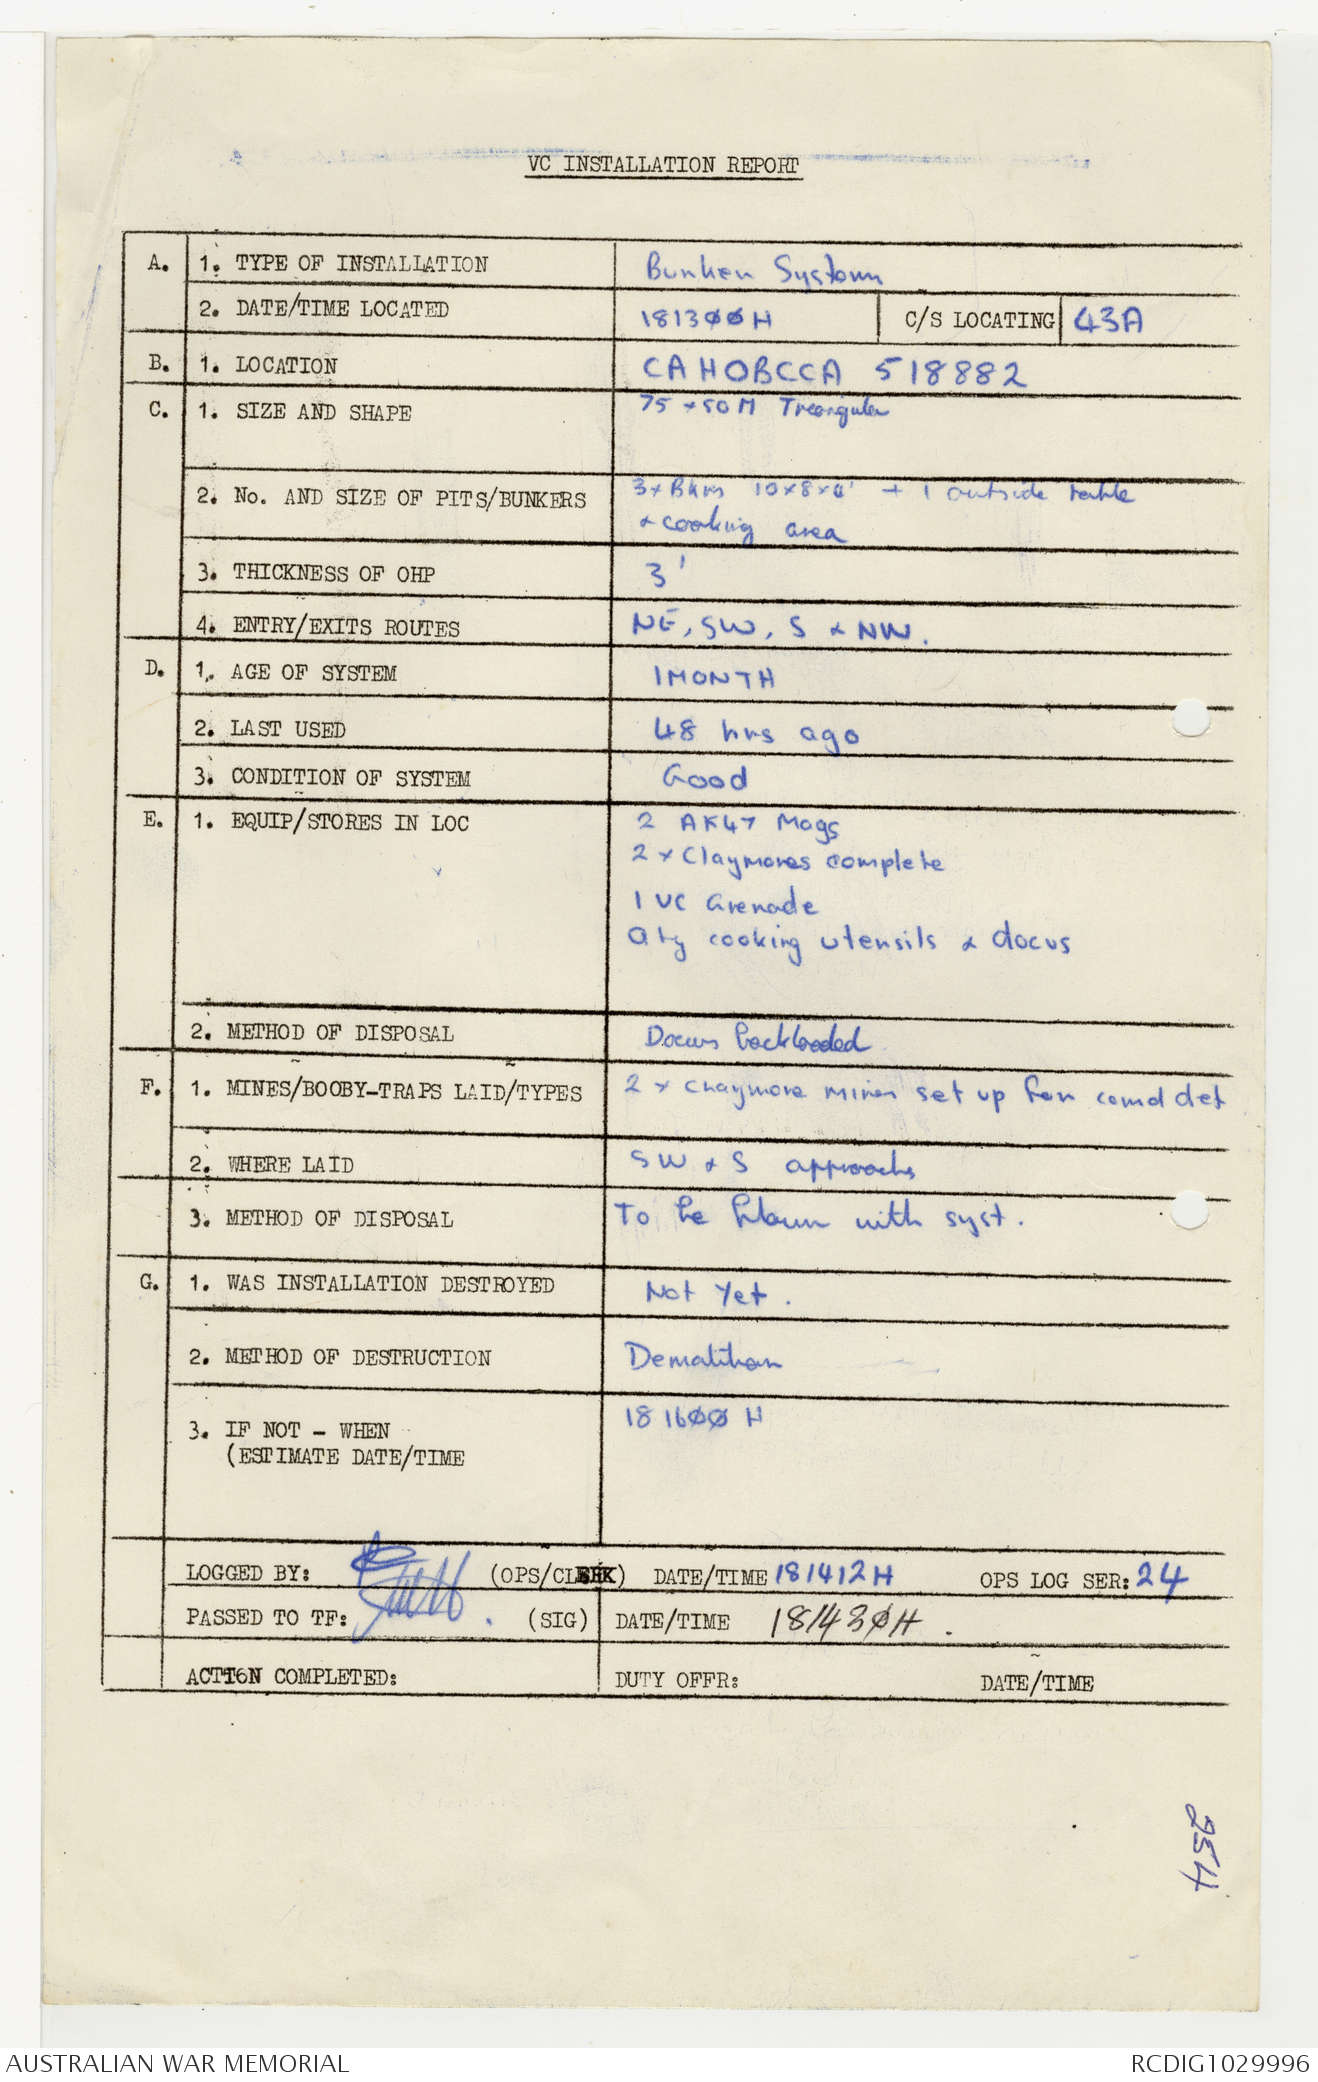 VC INSTALLATION REPORT
A. 1. TYPE OF INSTALLATION Bunker System
2. DATE/TIME LOCATED 181300H C/S LOCATING 43A
B. 1. LOCATION CAHOBCCA 518882
C. 1. SIZE AND SHAPE 75 x 50 M Triangular
2. No. AND SIZE OF PITS/BUNKERS 3 x Bkrs 10x8x4' + 1 outside table
& cooking area
3. THICKNESS OF OHP 3'
4. ENTRY/EXITS ROUTES NE, SW, S & NW.
D. 1. AGE OF SYSTEM 1 MONTH
2. LAST USED 48 hrs ago
3. CONDITION OF SYSTEM Good
E. 1. EQUIP/STORES IN LOC 2 AK47 Mags
2 x Claymores complete
1 VC Grenade
Qty cooking utensils & docus
2. METHOD OF DISPOSAL Docus backloaded
F. 1. MINES/BOOBY-TRAPS LAID/TYPES 2 x Claymore mines set up for comd det
2. WHERE LAID SW & S approachs
3. METHOD OF DISPOSAL To be blown with syst.
G. 1. WAS INSTALLATION DESTROYED Not Yet.
2. METHOD OF DESTRUCTION Demolition
3. IF NOT - WHEN 181600 H
(ESTIMATE DATE/TIME
LOGGED BY: (OPS/CLERK) DATE/TIME 181412H OPS LOG SER: 24
PASSED TO TF: (SIG) DATE/TIME 181430H.
ACTION COMPLETED: DUTY OFFR: DATE/TIME
254
AUSTRALIAN WAR MEMORIAL RCDIG1029996